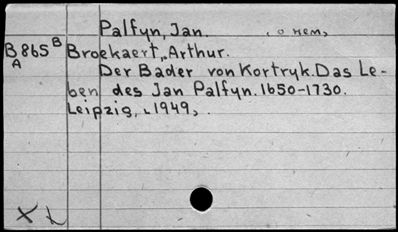 Palfyn, Jan. (о нем)
B865 B Broekaert, Arthur.
A Der Bader von Kortryk. Das Le-
ben des Jan Palfyn. 1650-1730.
Leipzig, 1949.